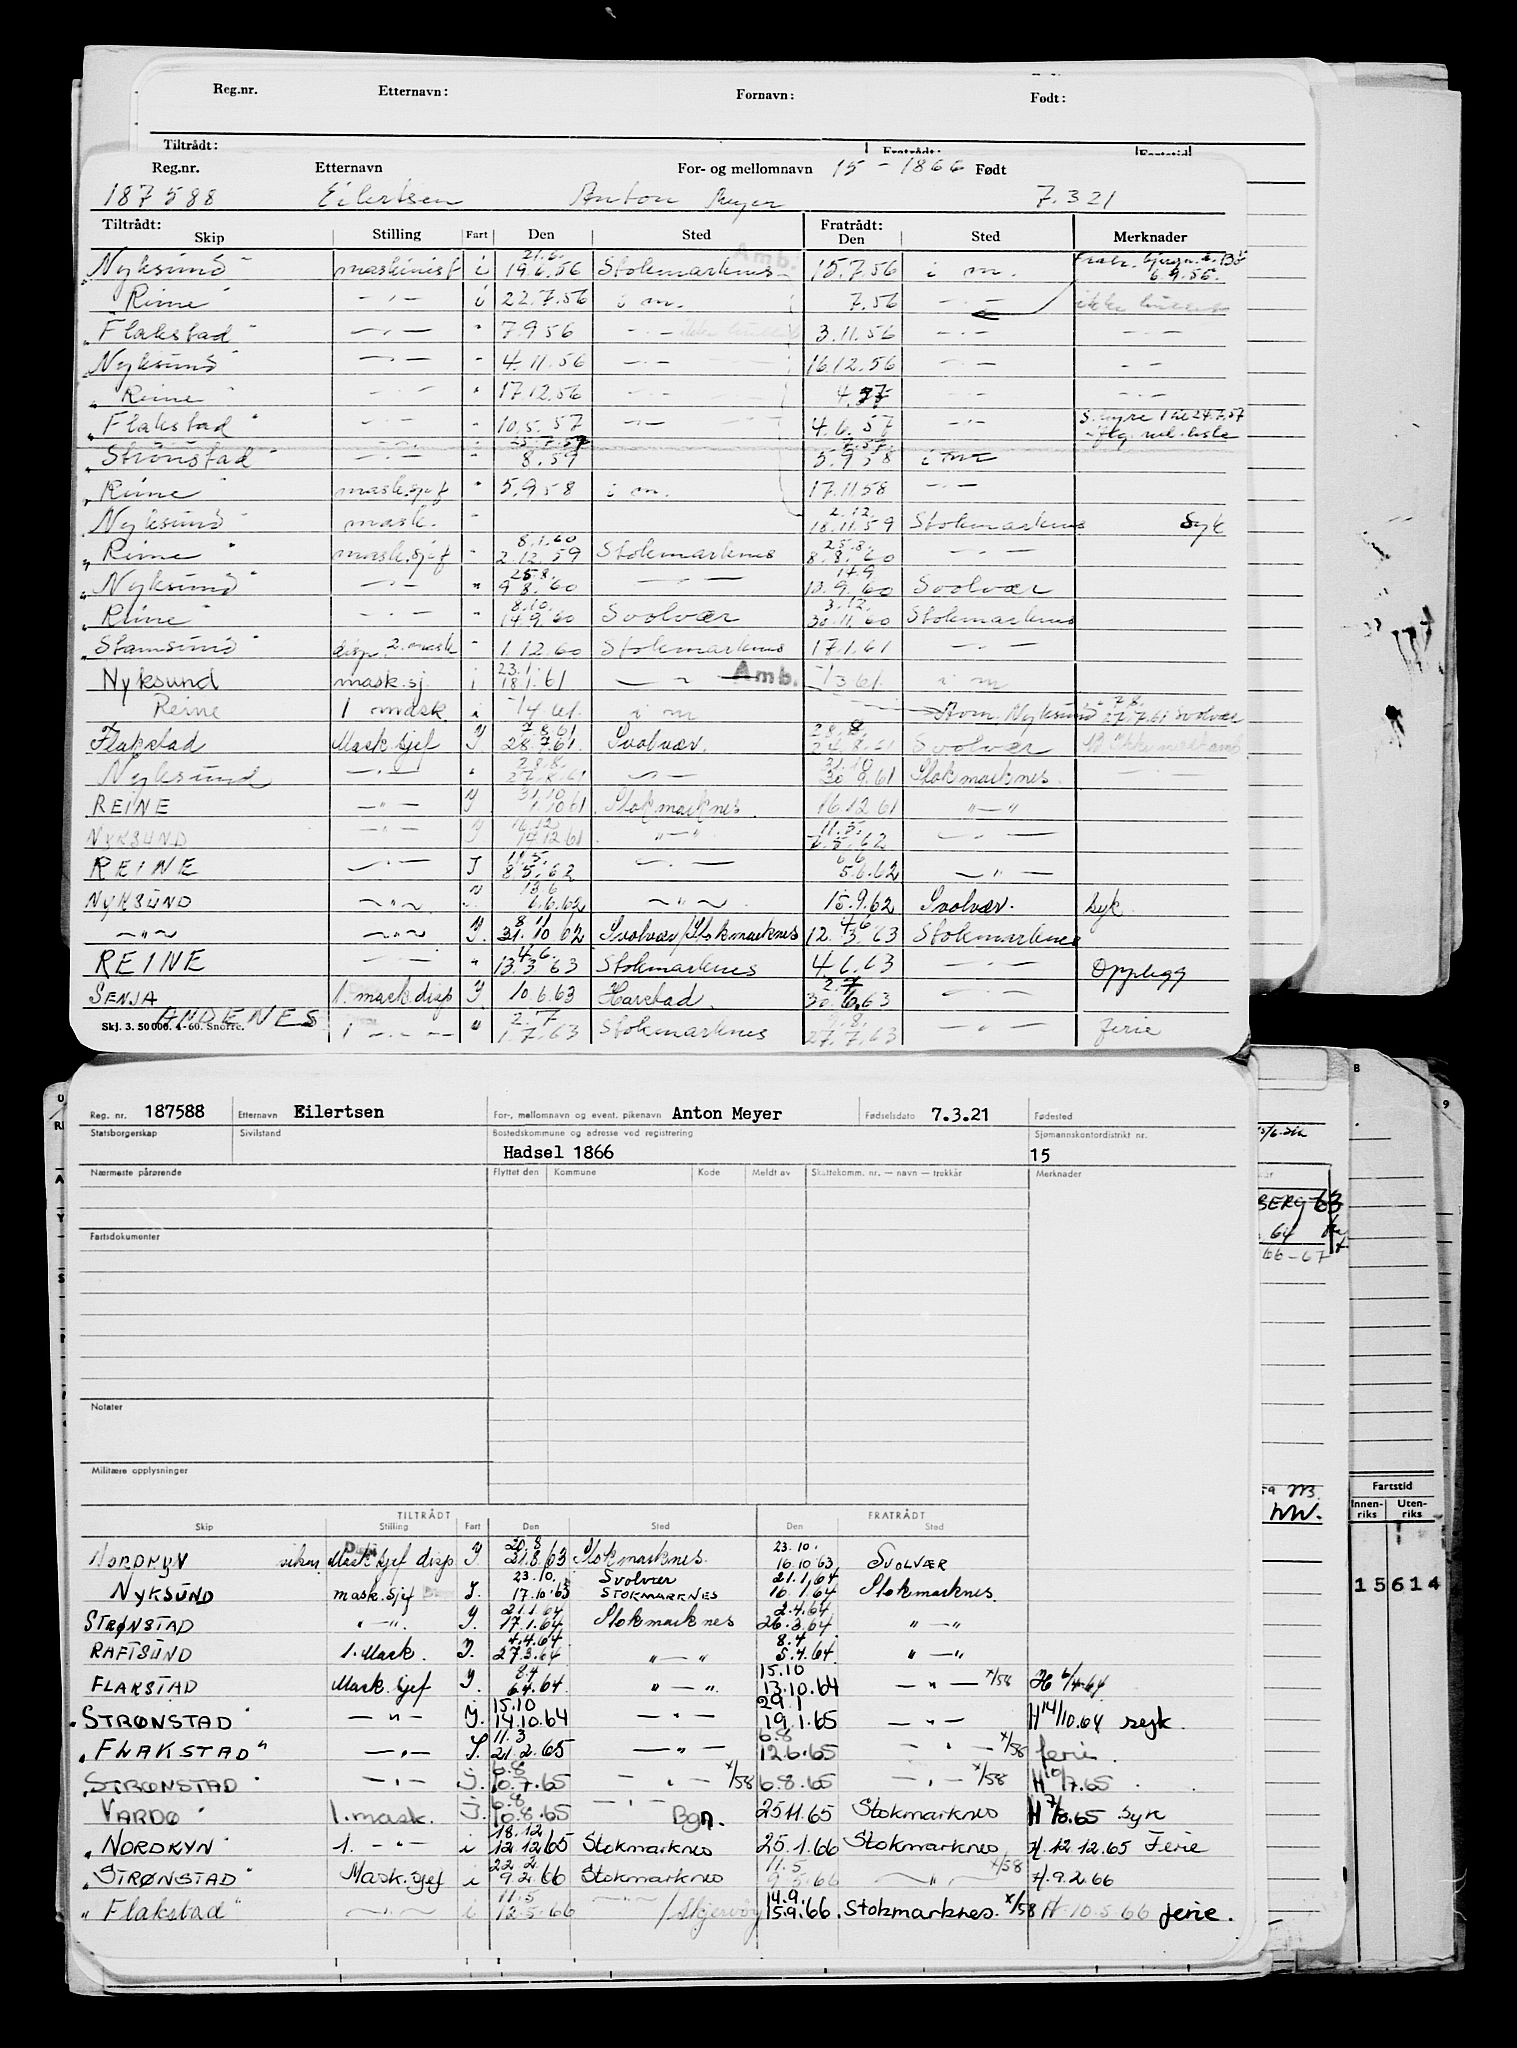 Reg.nr. Etternavn: Fornavn: Født:
Tiltrådt: Fratrådt: Fartstid
Reg.nr. Etternavn For- og mellomnavn 15 - 1866 Født
187588 Eilertsen Anton Meyer 7.3.21
Tiltrådt: Fratrådt:
Skip Stilling Fart Den Sted Den Sted Merknader
Amb.
21.6.
Nyksund" maskinist i 19.6.56 Stokmarknes 15.7.56 i m. 6.9.56.
Reine" -"- i 22.7.56 i m. 7.56 -"-
"Flakstad" -"- " 7.9.56 -"- 3.11.56 -"- -"-
"Nyksund" -"- " 4.11.56 -"- 16.12.56 -"- -"-
"Reine" -"- " 17.12.56 4.57 -"- -"-
"Flakstad" -"- " 10.5.57 -"- 4.6.57 -"-
25.7.57
"Strønstad" -"- " 8.57 5.9.58 i m
"Reine" mask.sjef " 5.9.58 i m. 17.11.58 -"-
2.12.
"Nyksund" mask. " 18.11.59 Stokmarknes Syk
8.1.60 25.8.
"Reine" mask.sjef " 2.12.59 Stokmarknes 8.8.60 -"-
25.8. 17.9
"Nyksund" -"- " 9.8.60 -"- 13.9.60 Svolvær
8.10. 3.12.
"Reine" -"- " 14.9.60 Svolvær 30.11.60 Stokmarknes
"Stamsund" disp. 2. mask " 1.12.60 Stokmarknes 17.1.61 -"-
23.1.
Nyksund mask.sj. i 18.1.61 -"- Amb. -/3 61 i m
Reine 1 mask. i -/4 61. i m Nyksund 27.7.61 Svolvær
7.8.61 28.8.
Flakstad Mask sjef I 28.7.61. Svolvær. 24.8.61 Svolvær
28.8. 31.10
Nyksund -"- " 27.8.61 -"- 30.9.61 Stokmarknes. -"-
31.10
REINE -"- I 1.10.61 Stokmarknes. 16.12.61 "-"
16.12 11.5.
NYKSUND -"- I 14.12.61 "-" 7.5.62 -"-
11.5. 6.6
REINE -"- I 8.5.62 -"- 5.6.62 -"-
13.6
NYKSUND -"- I. 6.6.62 -"- 15.9.62 Svolvær. Syk.
8.11 4.6
-"- -"- I. 31.10.62 Svolvær/Stokmarknes 12.3.63 Stokmarknes
4.6.
REINE -"- " 13.3.63 Stokmarknes 4.6.63 -"- Opplegg
2.7
SENJA 1. mask. disp I. 10.6.63 Harstad. 30.6.63
2.7 9.8.
ANDENES 1 -"- " 1.7.63 Stokmarknes 27.7.63 -"- ferie
Skj. 3. 50 000. 4-60. Snorre.
Reg. nr. 187588 Etternavn Eilertsen For-, mellomnavn og event. pikenavn Anton Meyer Fødselsdato 7.3.21 Fødested
Statsborgerskap Sivilstand Bostedskommune og adresse ved registrering Sjømannskontordistrikt nr.
Hadsel 1866 15
Nærmeste pårørende Flyttet den Kommune Kode Meldt av Skattekomm. nr. — navn — trekkår Merknader
Fartsdokumenter
Notater
Militære opplysninger
TILTRÅDT FRATRÅDT
Skip Stilling Fart Den Sted Den Sted
20.8 23.10.
NORDKYN vikar Mask sjef disp I. 21.8.63 Stokmarknes. 16.10.63 SVOLVÆR
23.10. Svolvær 21.1.64
NYKSUND mask.sjef I. 17.10.63 STOKMARKNES 16.1.64 Stokmarknes.
21.1.64 2.4.64
STRØNSTAD "-". I. 17.1.64 Stokmarknes 26.3.64 "-"
4.4.64 8.4.
RAFTSUND 1. Mask. I. 27.3.64 "-" 5.4.64. "-"
8.4 15.10
FLAKSTAD Mask.sjef I. 6.4.64. "-". 13.10.64 -"- x/58 H 6/4-64
15.10 29.1
"STRØNSTAD" -"- I. 14.10.64 -"- 19.1.65 -"- H 14/10.64 syk.
11.3 6.8
"FLAKSTAD" -"- I. 21.2.65 -"- 12.6.65 -"- x/58 ferie
6.8
"STRØNSTAD" -"- I. 10.7.65 -"- x/58 6.8.65 -"- x/58 H 10/7.65
6.8 -"-
"VARDØ" 1. mask. I. 10.8.65 Bgn. 25.11.65 Stokmarknes H 7/8.65 syk
18.12
"NORDKYN" 1. -"- i 12.12.65 Stokmarknes 25.1.66 Stokmarknes H. 12.12.65 Ferie
22.2 11.5
"STRØNSTAD" Mask.sjef i 9.2.66 Stokmarknes 9.5.66 -"- x/58 H. 9.2.66
11.5 14.9.
"Flakstad" -"- i 12.5.66 -"- /Skjervøy 15.9.66. Stokmarknes. x/58 H 10.5.66 ferie.
BERG 63
64
66-67
Fartstid
Innen-riks Uten-riks
15614